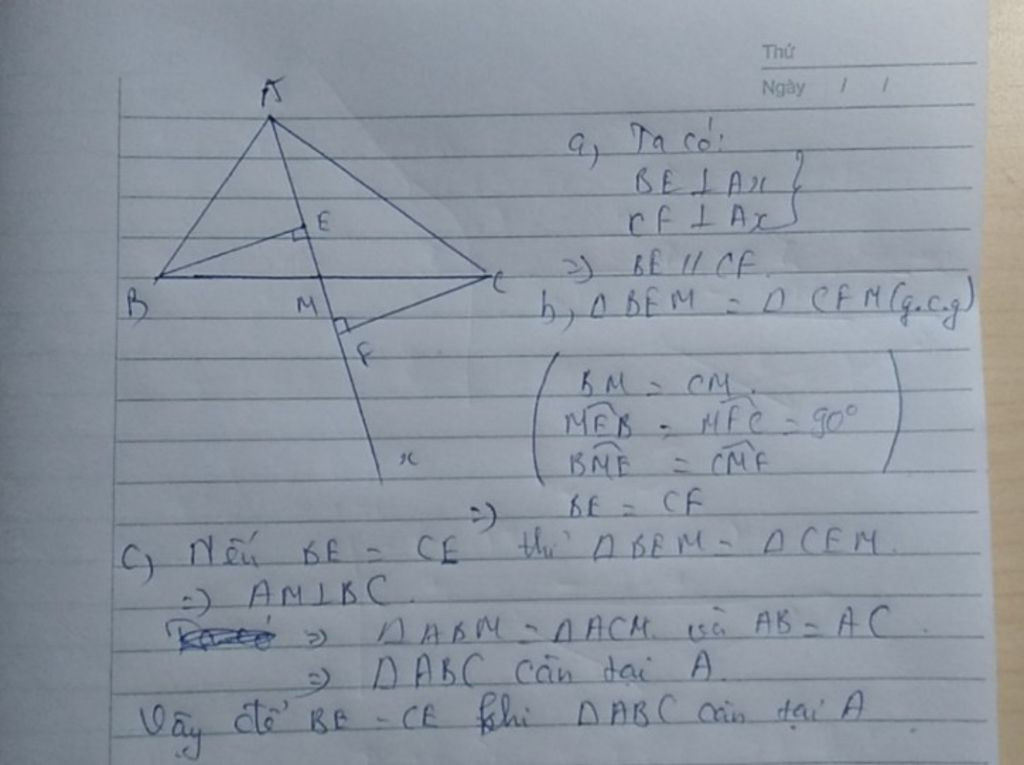 Thứ
Ngày / /
A
E
B
M
C
F
x
a, Ta có:
BE ⊥ Ax
CF ⊥ Ax
=> BE // CF
b, Δ BEM = Δ CFM (g.c.g)
BM = CM
MEB = MFC = 90°
BME = CMF
=> BE = CF
C) Nếu BE = CE thì Δ BEM = Δ CEM
=> AM ⊥ BC
=> Δ ABM = Δ ACM và AB = AC
=> Δ ABC cân tại A
Vậy để BE = CE khi Δ ABC cân tại A